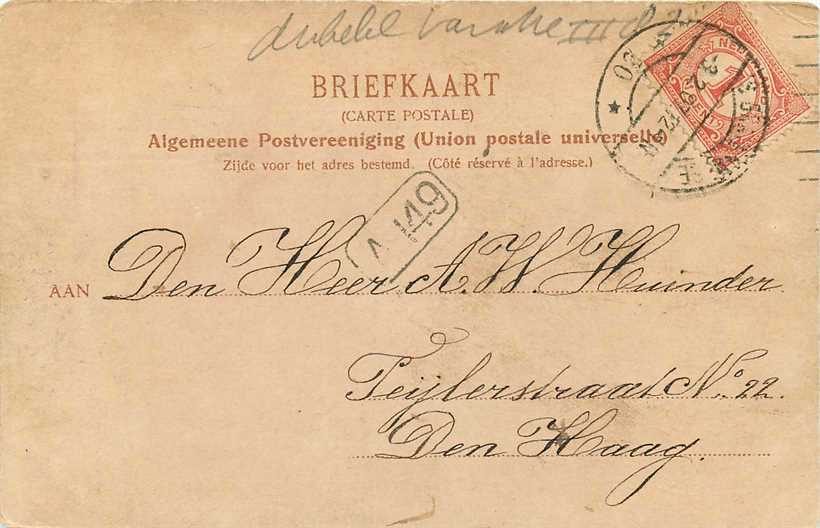 BRIEFKAART
(CARTE POSTALE)
Algemeene Postvereeniging (Union postale universelle)
Zijde voor het adres bestemd. (Côté réservé à l'adresse.)
A 149
AAN Den Heer A. W. Huinder
Teijlerstraat No. 22.
Den Haag.